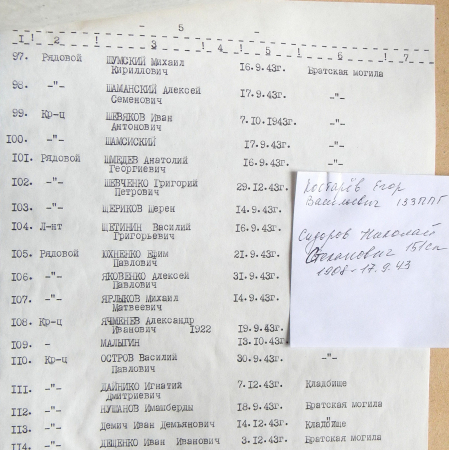 - 5 -
I ! 2 ! 3 ! 4 ! 5 ! 6 ! 7
97. Рядовой ШУМСКИЙ Михаил Кириллович 16.9.43г. Братская могила
98. -"- ШАМАНСКИЙ Алексей Семенович 17.9.43г. -"-
99. Кр-ц ШЕВЯКОВ Иван Антонович 7.10.1943г. -"-
I00. -"- ШАМСИСКИЙ 17.9.43г. -"-
I01. Рядовой ШМЕЛЕВ Анатолий Георгиевич 16.9.43г.
I02. -"- ШЕВЧЕНКО Григорий Петрович 29.12.43г.
I03. -"- ЩЕРИКОВ Щерен 14.9.43г.
I04. Л-нт ЩЕТИНИН Василий Григорьевич 16.9.43г.
I05. Рядовой ЮХНЕНКО Ефим Павлович 21.9.43г.
I06. -"- ЯКОВЕНКО Алексей Павлович 31.9.43г.
I07. -"- ЯРЛЫКОВ Михаил Матвеевич 14.9.43г.
I08. Кр-ц ЯЧМЕНЕВ Александр Иванович 1922 19.9.43г.
I09. - МАЛЫГИН 13.10.43г.
II0. Кр-ц ОСТРОВ Василий Павлович 30.9.43г. -"-
III. -"- ДАЙНИКО Игнатий Дмитриевич 7.12.43г. Кладбище
II2. -"- НУШАНОВ Имашберды I8.9.43г. Братская могила
II3. -"- Демич Иван Демьянович 14.12.43г. Кладбище
II4. -"- ДЕЩЕНКО Иван Иванович 3.12.43г. Братская могила
Егор
Васильевич 133ППГ
Сидоров Николай
Степанович
1908-17.9.43